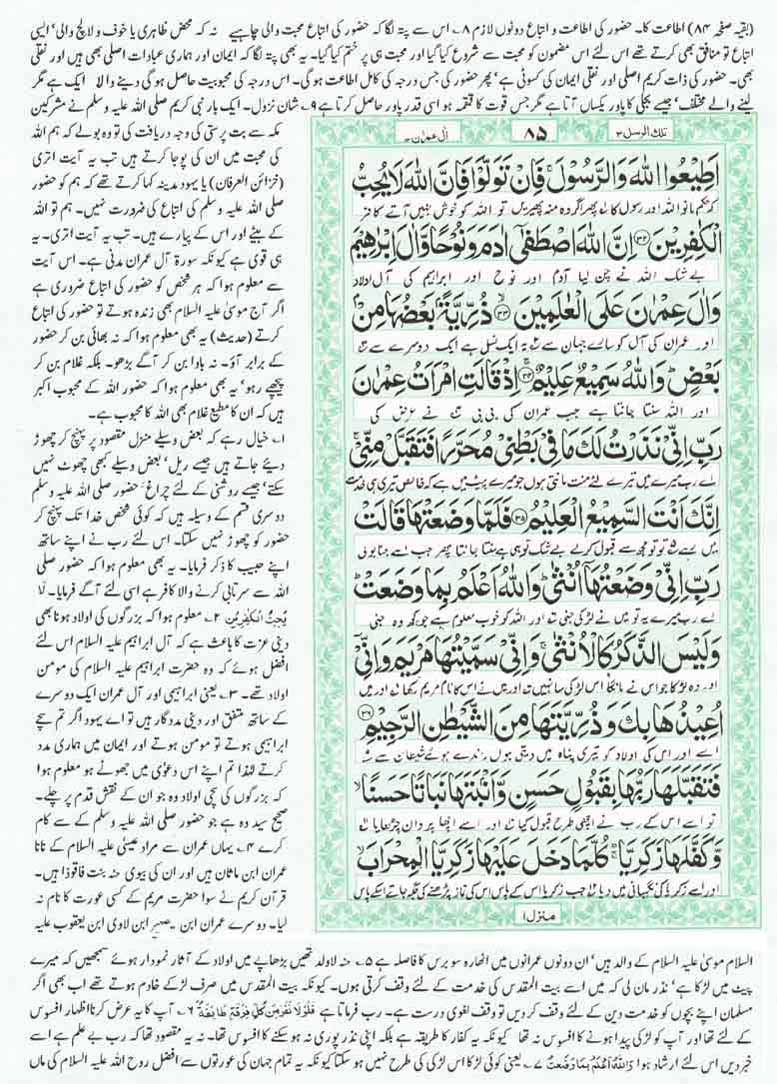 (بقیہ صفحہ ۸۴) اطاعت کا۔ حضور کی اطاعت و اتباع دونوں لازم ۸؎ اس سے پتہ لگا کہ حضور کی اتباع محبت والی چاہیے نہ کہ محض ظاہری یا خوف و لالچ والی' ایسی
اتباع تو منافق بھی کرتے تھے اس لئے اس مضمون کو محبت سے شروع کیا گیا اور محبت ہی پر ختم کیا گیا۔ یہ بھی پتہ لگا کہ ایمان اور ہماری عبادات اصلی بھی ہیں اور نقلی
بھی۔ حضور کی ذات کریم اصلی اور نقلی ایمان کی کسوٹی ہے' پھر حضور کی جس درجہ کی کامل اطاعت ہوگی۔ اس درجہ کی محبوبیت حاصل ہوگی دینے والا ایک ہے مگر
لینے والے مختلف' جیسے بجلی کا پاور یکساں آتا ہے مگر جس قوت کا قمقمہ ہو اسی قدر پاور حاصل کرتا ہے ۹؎ شان نزول۔ ایک بار نبی کریم صلی اللہ علیہ وسلم نے مشرکین
مکہ سے بت پرستی کی وجہ دریافت کی تو وہ بولے کہ ہم اللہ
کی محبت میں ان کی پوجا کرتے ہیں تب یہ آیت اتری
(خزائن العرفان) یا یہود مدینہ کہا کرتے تھے کہ ہم کو حضور
صلی اللہ علیہ وسلم کی اتباع کی ضرورت نہیں۔ ہم تو اللہ
کے بیٹے اور اس کے پیارے ہیں۔ تب یہ آیت اتری۔ یہ
ہی قوی ہے کیونکہ سورۃ آل عمران مدنی ہے۔ اس آیت
سے معلوم ہوا کہ ہر شخص کو حضور کی اتباع ضروری ہے
اگر آج موسیٰ علیہ السلام بھی زندہ ہوتے تو حضور کی اتباع
کرتے (حدیث) یہ بھی معلوم ہوا کہ نہ بھائی بن کر حضور
کے برابر آؤ۔ نہ باوا بن کر آگے بڑھو۔ بلکہ غلام بن کر
پیچھے رہو' یہ بھی معلوم ہوا کہ حضور اللہ کے محبوب اکبر
ہیں کہ ان کا مطیع غلام بھی اللہ کا محبوب ہے۔
۱؎ خیال رہے کہ بعض وسیلے منزل مقصود پر پہنچ کر چھوڑ
دیئے جاتے ہیں جیسے ریل' بعض وسیلے کبھی چھوٹ نہیں
سکتے' جیسے روشنی کے لئے چراغ' حضور صلی اللہ علیہ وسلم
دوسری قسم کے وسیلہ ہیں کہ کوئی شخص خدا تک پہنچ کر
حضور کو چھوڑ نہیں سکتا۔ اس لئے رب نے اپنے ساتھ
اپنے حبیب کا ذکر فرمایا۔ یہ بھی معلوم ہوا کہ حضور صلی
اللہ سے سرتابی کرنے والا کافر ہے اسی لئے آگے فرمایا۔ لَا
یُحِبُّ الْکٰفِرِیْنَ ۲؎ معلوم ہوا کہ بزرگوں کی اولاد ہونا بھی
دینی عزت کا باعث ہے کہ آل ابراہیم علیہ السلام اس لئے
افضل ہوئے کہ وہ حضرت ابراہیم علیہ السلام کی مومن
اولاد تھے۔ ۳؎ یعنی ابراہیمی اور آل عمران ایک دوسرے
کے ساتھ متفق اور دینی مددگار ہیں تو اے یہود اگر تم سچے
ابراہیمی ہوتے تو مومن ہوتے اور ایمان میں ہماری مدد
کرتے لہٰذا تم اپنے اس دعویٰ میں جھوٹے ہو معلوم ہوا
کہ بزرگوں کی سچی اولاد وہ جو ان کے نقش قدم پر چلے۔
صحیح سید وہ ہے جو حضور صلی اللہ علیہ وسلم کے سے کام
کرے ۴؎ یہاں عمران سے مراد عیسیٰ علیہ السلام کے نانا
عمران ابن ماثان ہیں اور ان کی بیوی حنہ بنت فاقوذا ہیں۔
قرآن کریم نے سوا حضرت مریم کے کسی عورت کا نام نہ
لیا۔ دوسرے عمران ابن یصہر ابن لاوی ابن یعقوب علیہ
تلک الرسل ۳
۸۵
اٰل عمرٰن ۳
اَطِیْعُوا اللّٰهَ وَالرَّسُوْلَ ۚ فَاِنْ تَوَلَّوْا فَاِنَّ اللّٰهَ لَا یُحِبُّ
کہ حکم مانو اللہ اور رسول کا پھر اگر وہ منہ پھیریں تو اللہ کو خوش نہیں آتے کافر
الْكٰفِرِیْنَ ۝۳۲ اِنَّ اللّٰهَ اصْطَفٰۤى اٰدَمَ وَ نُوْحًا وَّ اٰلَ اِبْرٰهِیْمَ
بے شک اللہ نے چن لیا آدم اور نوح اور ابراہیم کی آل اولاد
وَ اٰلَ عِمْرٰنَ عَلَى الْعٰلَمِیْنَ ۝۳۳ ذُرِّیَّةًۢ بَعْضُهَا مِنْۢ
اور عمران کی آل کو سارے جہان سے یہ ایک نسل ہے ایک دوسرے سے
بَعْضٍ ؕ وَ اللّٰهُ سَمِیْعٌ عَلِیْمٌ ۝۳۴ اِذْ قَالَتِ امْرَاَتُ عِمْرٰنَ
اور اللہ سنتا جانتا ہے جب عمران کی بی بی نے عرض کی
رَبِّ اِنِّیْ نَذَرْتُ لَكَ مَا فِیْ بَطْنِیْ مُحَرَّرًا فَتَقَبَّلْ مِنِّیْ ۚ
اے رب میرے میں تیرے لئے منت مانتی ہوں جو میرے پیٹ میں ہے کہ خالص تیری ہی خدمت
اِنَّكَ اَنْتَ السَّمِیْعُ الْعَلِیْمُ ۝۳۵ فَلَمَّا وَضَعَتْهَا قَالَتْ
میں رہے تو تو مجھ سے قبول کر لے بے شک تو ہی ہے سنتا جانتا پھر جب اسے جنا بولی
رَبِّ اِنِّیْ وَضَعْتُهَاۤ اُنْثٰى ؕ وَ اللّٰهُ اَعْلَمُ بِمَا وَضَعَتْ ؕ
اے رب میرے یہ تو میں نے لڑکی جنی اور اللہ کو خوب معلوم ہے جو کچھ وہ جنی
وَ لَیْسَ الذَّكَرُ كَالْاُنْثٰى ۚ وَ اِنِّیْ سَمَّیْتُهَا مَرْیَمَ وَ اِنِّیْۤ
اور وہ لڑکا جو اس نے مانگا اس لڑکی سا نہیں اور میں نے اس کا نام مریم رکھا اور میں
اُعِیْذُهَا بِكَ وَ ذُرِّیَّتَهَا مِنَ الشَّیْطٰنِ الرَّجِیْمِ ۝۳۶
اسے اور اس کی اولاد کو تیری پناہ میں دیتی ہوں راندے ہوئے شیطان سے
فَتَقَبَّلَهَا رَبُّهَا بِقَبُوْلٍ حَسَنٍ وَّ اَنْۢبَتَهَا نَبَاتًا حَسَنًا ۙ
تو اسے اس کے رب نے اچھی طرح قبول کیا اور اسے اچھا پروان چڑھایا
وَّ كَفَّلَهَا زَكَرِیَّا ؕ كُلَّمَا دَخَلَ عَلَیْهَا زَكَرِیَّا الْمِحْرَابَ ۙ
اور اسے زکریا کی نگہبانی میں دیا جب زکریا اس کے پاس اس کی نماز پڑھنے کی جگہ جاتے اسکے پاس
منزل ۱
السلام موسیٰ علیہ السلام کے والد ہیں' ان دونوں عمرانوں میں اٹھارہ سو برس کا فاصلہ ہے ۵؎ حنہ لاولد تھیں بڑھاپے میں اولاد کے آثار نمودار ہوئے سمجھیں کہ میرے
پیٹ میں لڑکا ہے' نذر مان لی کہ میں اسے بیت المقدس کی خدمت کے لئے وقف کرتی ہوں۔ کیونکہ بیت المقدس میں صرف لڑکے خادم ہوتے تھے اب بھی اگر
مسلمان اپنے بچوں کو خدمت دین کے لئے وقف کر دیں تو وقف لغوی درست ہے۔ رب فرماتا ہے فَلَوْلَا نَفَرَ مِنْ كُلِّ فِرْقَةٍ طَآئِفَةٌ ۶؎ آپ کا یہ عرض کرنا اظہار افسوس
کے لئے تھا اور آپ کو لڑکی پیدا ہونے کا افسوس نہ تھا کیونکہ یہ کفار کا طریقہ ہے بلکہ اپنی نذر پوری نہ ہو سکنے کا افسوس تھا۔ نہ یہ مقصود تھا کہ رب بے علم ہے اسے
خبر دیں اس لئے ارشاد ہوا وَاللّٰهُ اَعْلَمُ بِمَا وَضَعَتْ ۷؎ یعنی کوئی لڑکا اس لڑکی کی طرح نہیں ہو سکتا کیونکہ یہ تمام جہان کی عورتوں سے افضل روح اللہ علیہ السلام کی ماں